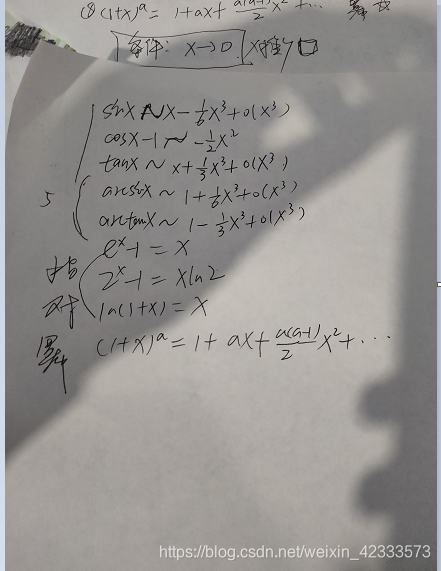 ② (1+x)ᵃ = 1+ax+ a(a-1)/2 x²+… 幂
条件: x→0
sinx ~ x-1/6x³+o(x³)
cosx-1 ~ -1/2x²
tanx ~ x+1/3x³+o(x³)
5
arcsinx ~ 1+1/6x³+o(x³)
arctanx ~ 1-1/3x³+o(x³)
eˣ-1=x
指
2ˣ-1=xln2
对
ln(1+x)=x
幂 (1+x)ᵃ=1+ax+ a(a-1)/2 x²+…
https://blog.csdn.net/weixin_42333573